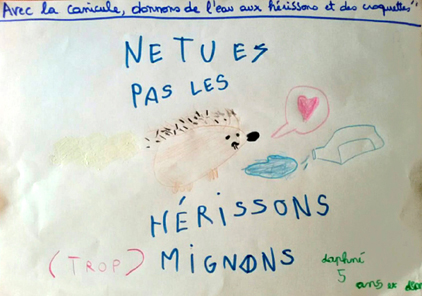 Avec la canicule, donnons de l'eau aux hérissons et des croquettes"
NE TUES
PAS LES
HÉRISSONS
(TROP) MIGNONS
daphné
5
ans et